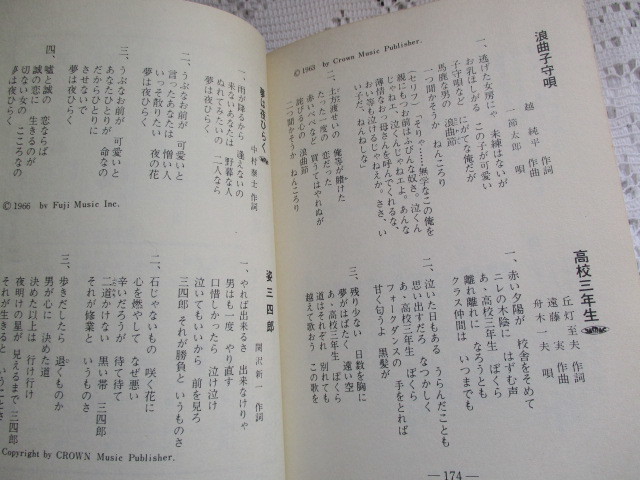 浪曲子守唄
越純平 作詞 作曲
一節太郎 唄
一、逃げた女房にゃ 未練はないが
お乳ほしがる この子が可愛い
子守唄など にがてな俺だが
馬鹿な男の 浪曲節
一つ聞かそうか ねんころり
(セリフ)「そりゃ……無学なこの俺を
親にもつお前はふびんな奴さ。泣くん
じゃねエ、泣くんじゃねエよ。あんな
薄情なおっ母さんを呼んでくれるな、
おい等も泣けるじゃねえか。ささ、い
い子だ、ねんねしな」
二、土方渡世の 俺等が賭けた
たった一度の 恋だった
赤いべべなど 買うてはやれぬが
詫びる心の 浪曲節
二つ聞かそうか ねんころり
© 1963 by Crown Music Publisher.
高校三年生
丘灯至夫 作詞
遠藤実 作曲
舟木一夫 唄
一、赤い夕陽が 校舎をそめて
ニレの木陰に はずむ声
あ・高校三年生 ぼくら
離れ離れに なろうとも
クラス仲間は いつまでも
二、泣いた日もある うらんだことも
思い出すだろ なつかしく
あ・高校三年生 ぼくら
フォークダンスの 手をとれば
甘く匂うよ 黒髪が
三、残り少ない 日数を胸に
夢がはばたく 遠い空
あ・高校三年生 ぼくら
道はそれぞれ 別れても
越えて歌おう この歌を
—174—
夢は夜ひらく
中村泰士 作詞
一、雨が降るから 逢えないの
来ないあなたは 野暮な人
ぬれてみたいの 二人なら
夢は夜ひらく
二、うぶなお前が 可愛いと
言ったあなたは 憎い人
いっそ散りたい 夜の花
夢は夜ひらく
三、うぶなお前が 可愛いと
あなたひとりが 命なの
だからひとりに させないで
夢は夜ひらく
四、嘘と誠の 恋ならば
誠の恋に 生きるのが
切ない女の こころなの
夢は夜ひらく
© 1966 by Fuji Music Inc.
姿三四郎
関沢新一 作詞
一、やれば出来るさ 出来なけりゃ
男はも一度 やり直す
口惜しかったら 泣け泣け
泣いてもいいから 前を見ろ
三四郎 それが勝負と いうものさ
二、石じゃないもの 咲く花に
心を燃やして なぜ悪い
辛いだろうが 待て待て
二道かけない 黒い帯 三四郎
それが修業と いうものさ
三、歩きだしたら 退くものか
男が心に 決めた道
決めた以上は 行け行け
夜明けの星が 見えるまで 三四郎
それが生きると いうことさ
Copyright by CROWN Music Publisher.